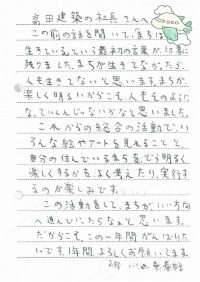 高田建築の社長さんへ
この前の話を聞いて、まちは
生きているという最初の言葉が印象に
残りました。まちが生きてなかったら
人も生きてないと思います。まちが
楽しく明るいからこそ、人もそのように
なっていくんじゃないかなと思いました。
これからの総合の活動で、い
ろんな絵やアートを見れることと、
自分の住んでいるまちを、どう明るく
楽しくするかを、よく考えたり、実行す
るのが楽しみです。
この活動をして、まちがいい方向
へ進んでいったらなぁと思います。
だからこそ、この一年間がんばりた
いです。1年間よろしくお願いします